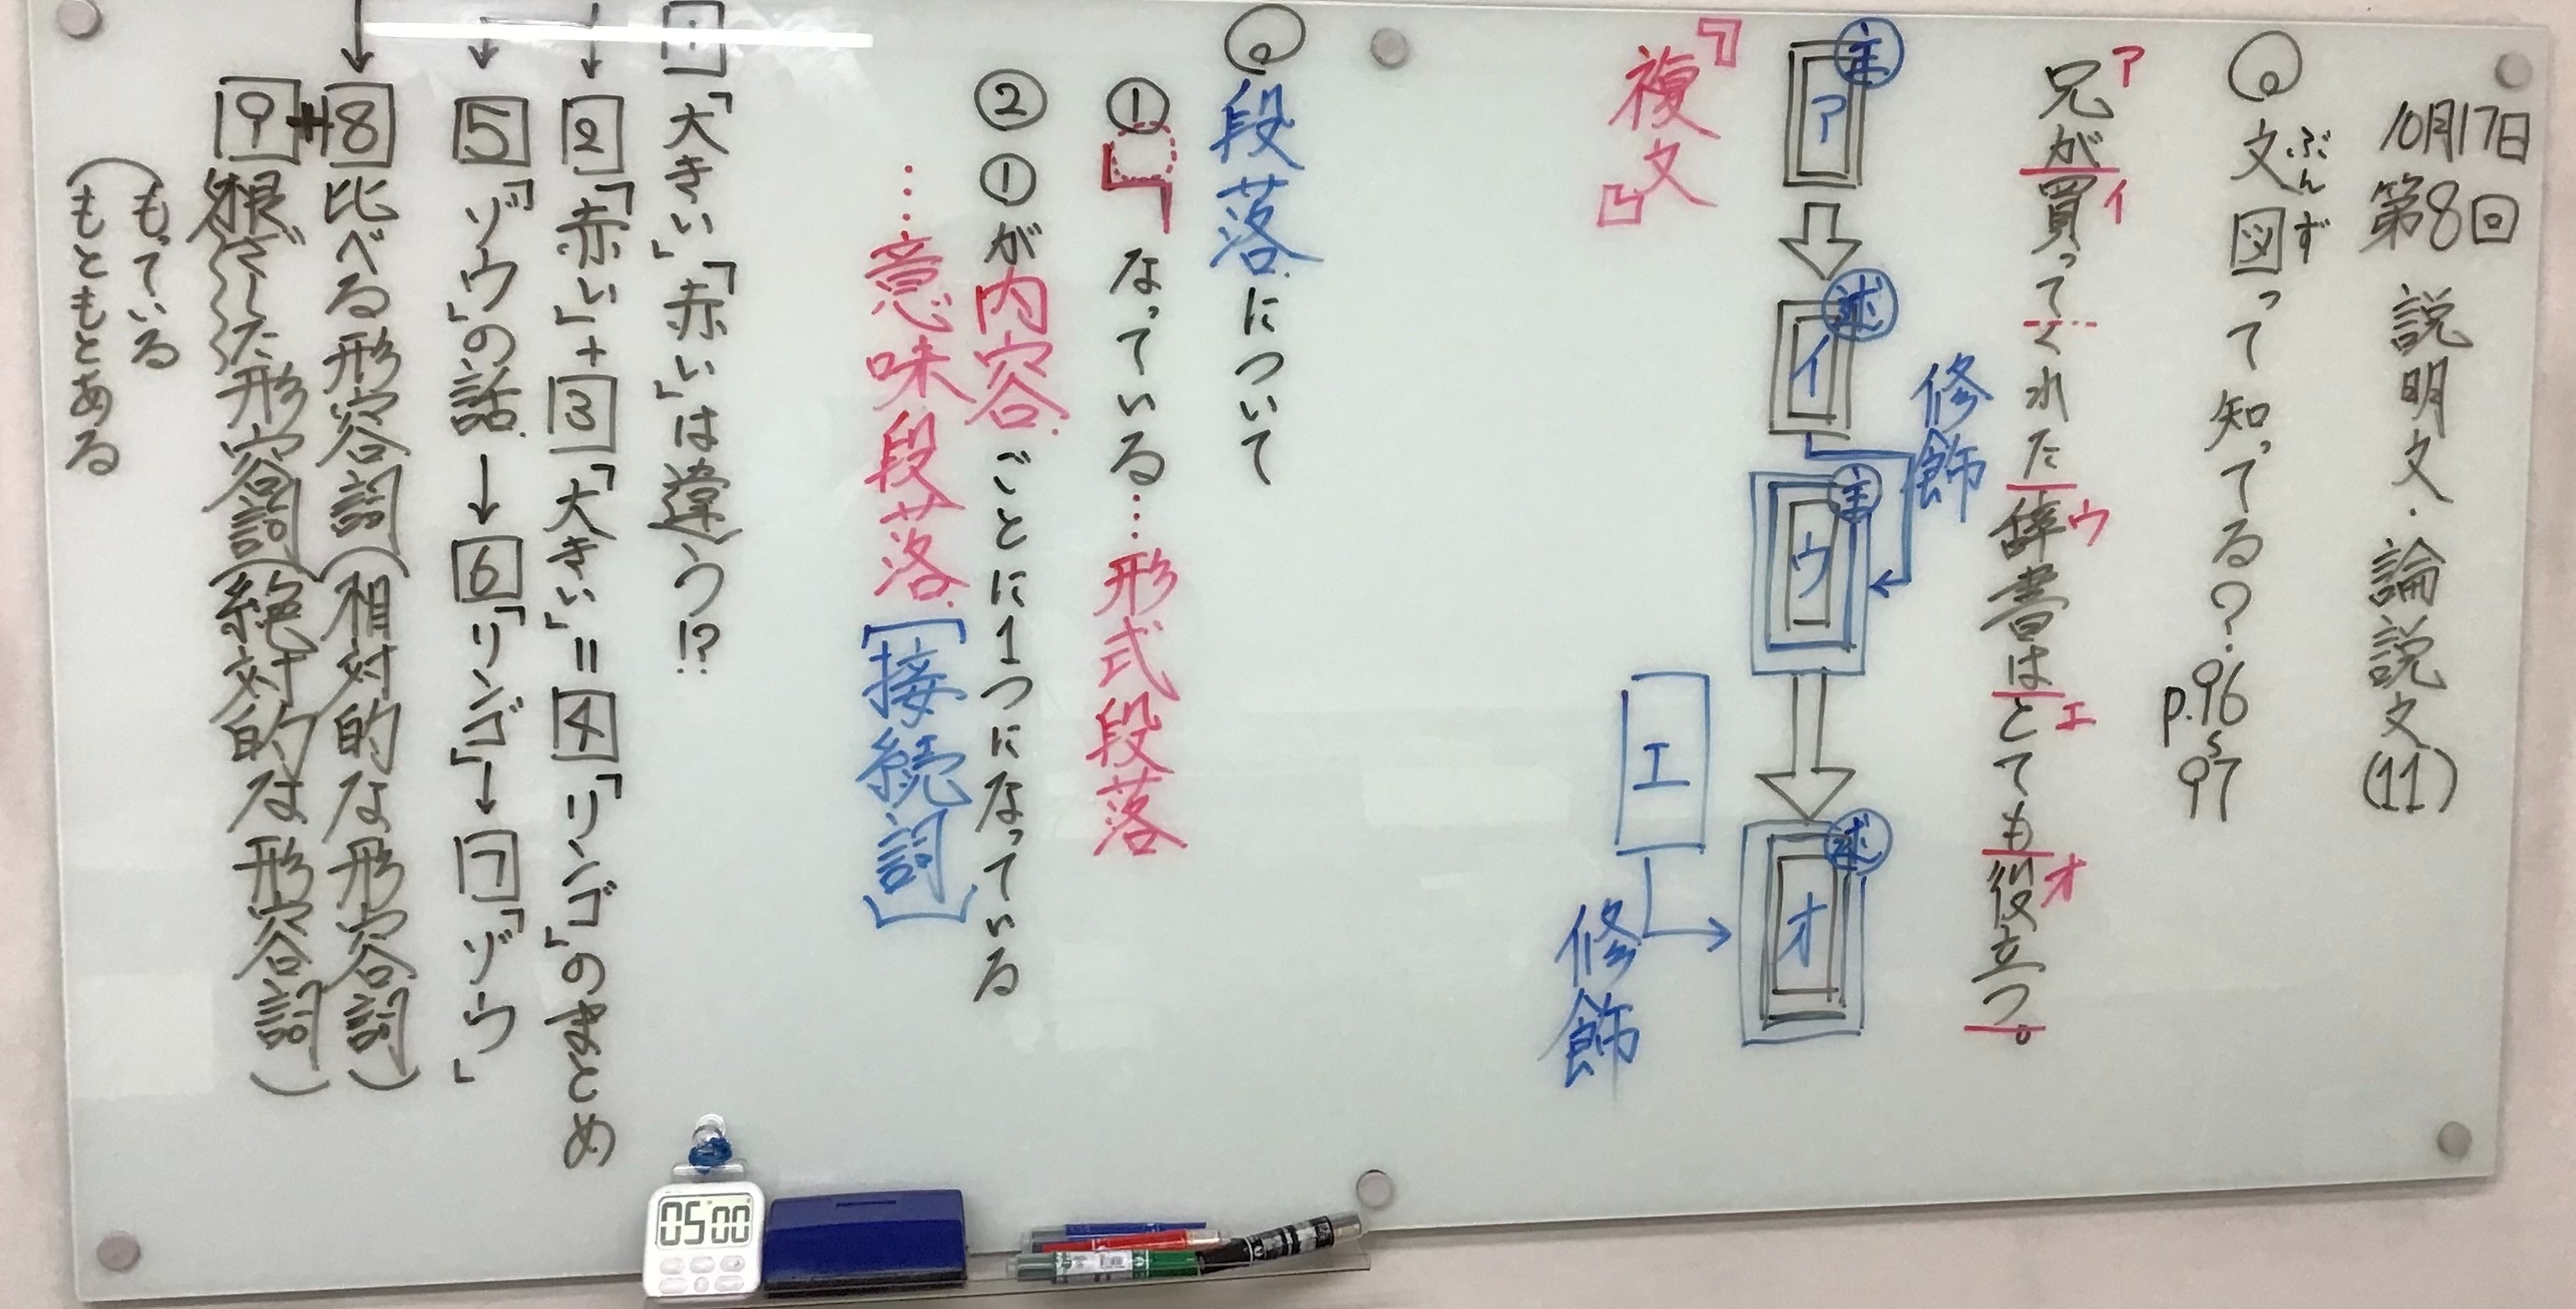 10月17日 第8回 説明文・論説文(11)
◎文図って知ってる? p.96〜97
ぶんず
ア イ ウ エ オ
兄が買ってくれた辞書はとても役立つ。
修飾
主 ア 述 イ 主 ウ 述 オ
エ
修飾
『複文』
◎段落について
① なっている……形式段落
②①が内容ごとに1つになっている
……意味段落[接続詞]
1「大きい」「赤い」は違う!?
↓2「赤い」+3「大きい」=4「リンゴ」のまとめ
↓5「ゾウ」の話→6「リンゴ」→7「ゾウ」
↓8比べる形容詞(相対的な形容詞)
+
9根ざした形容詞(絶対的な形容詞)
(もっている
もともとある
05 00